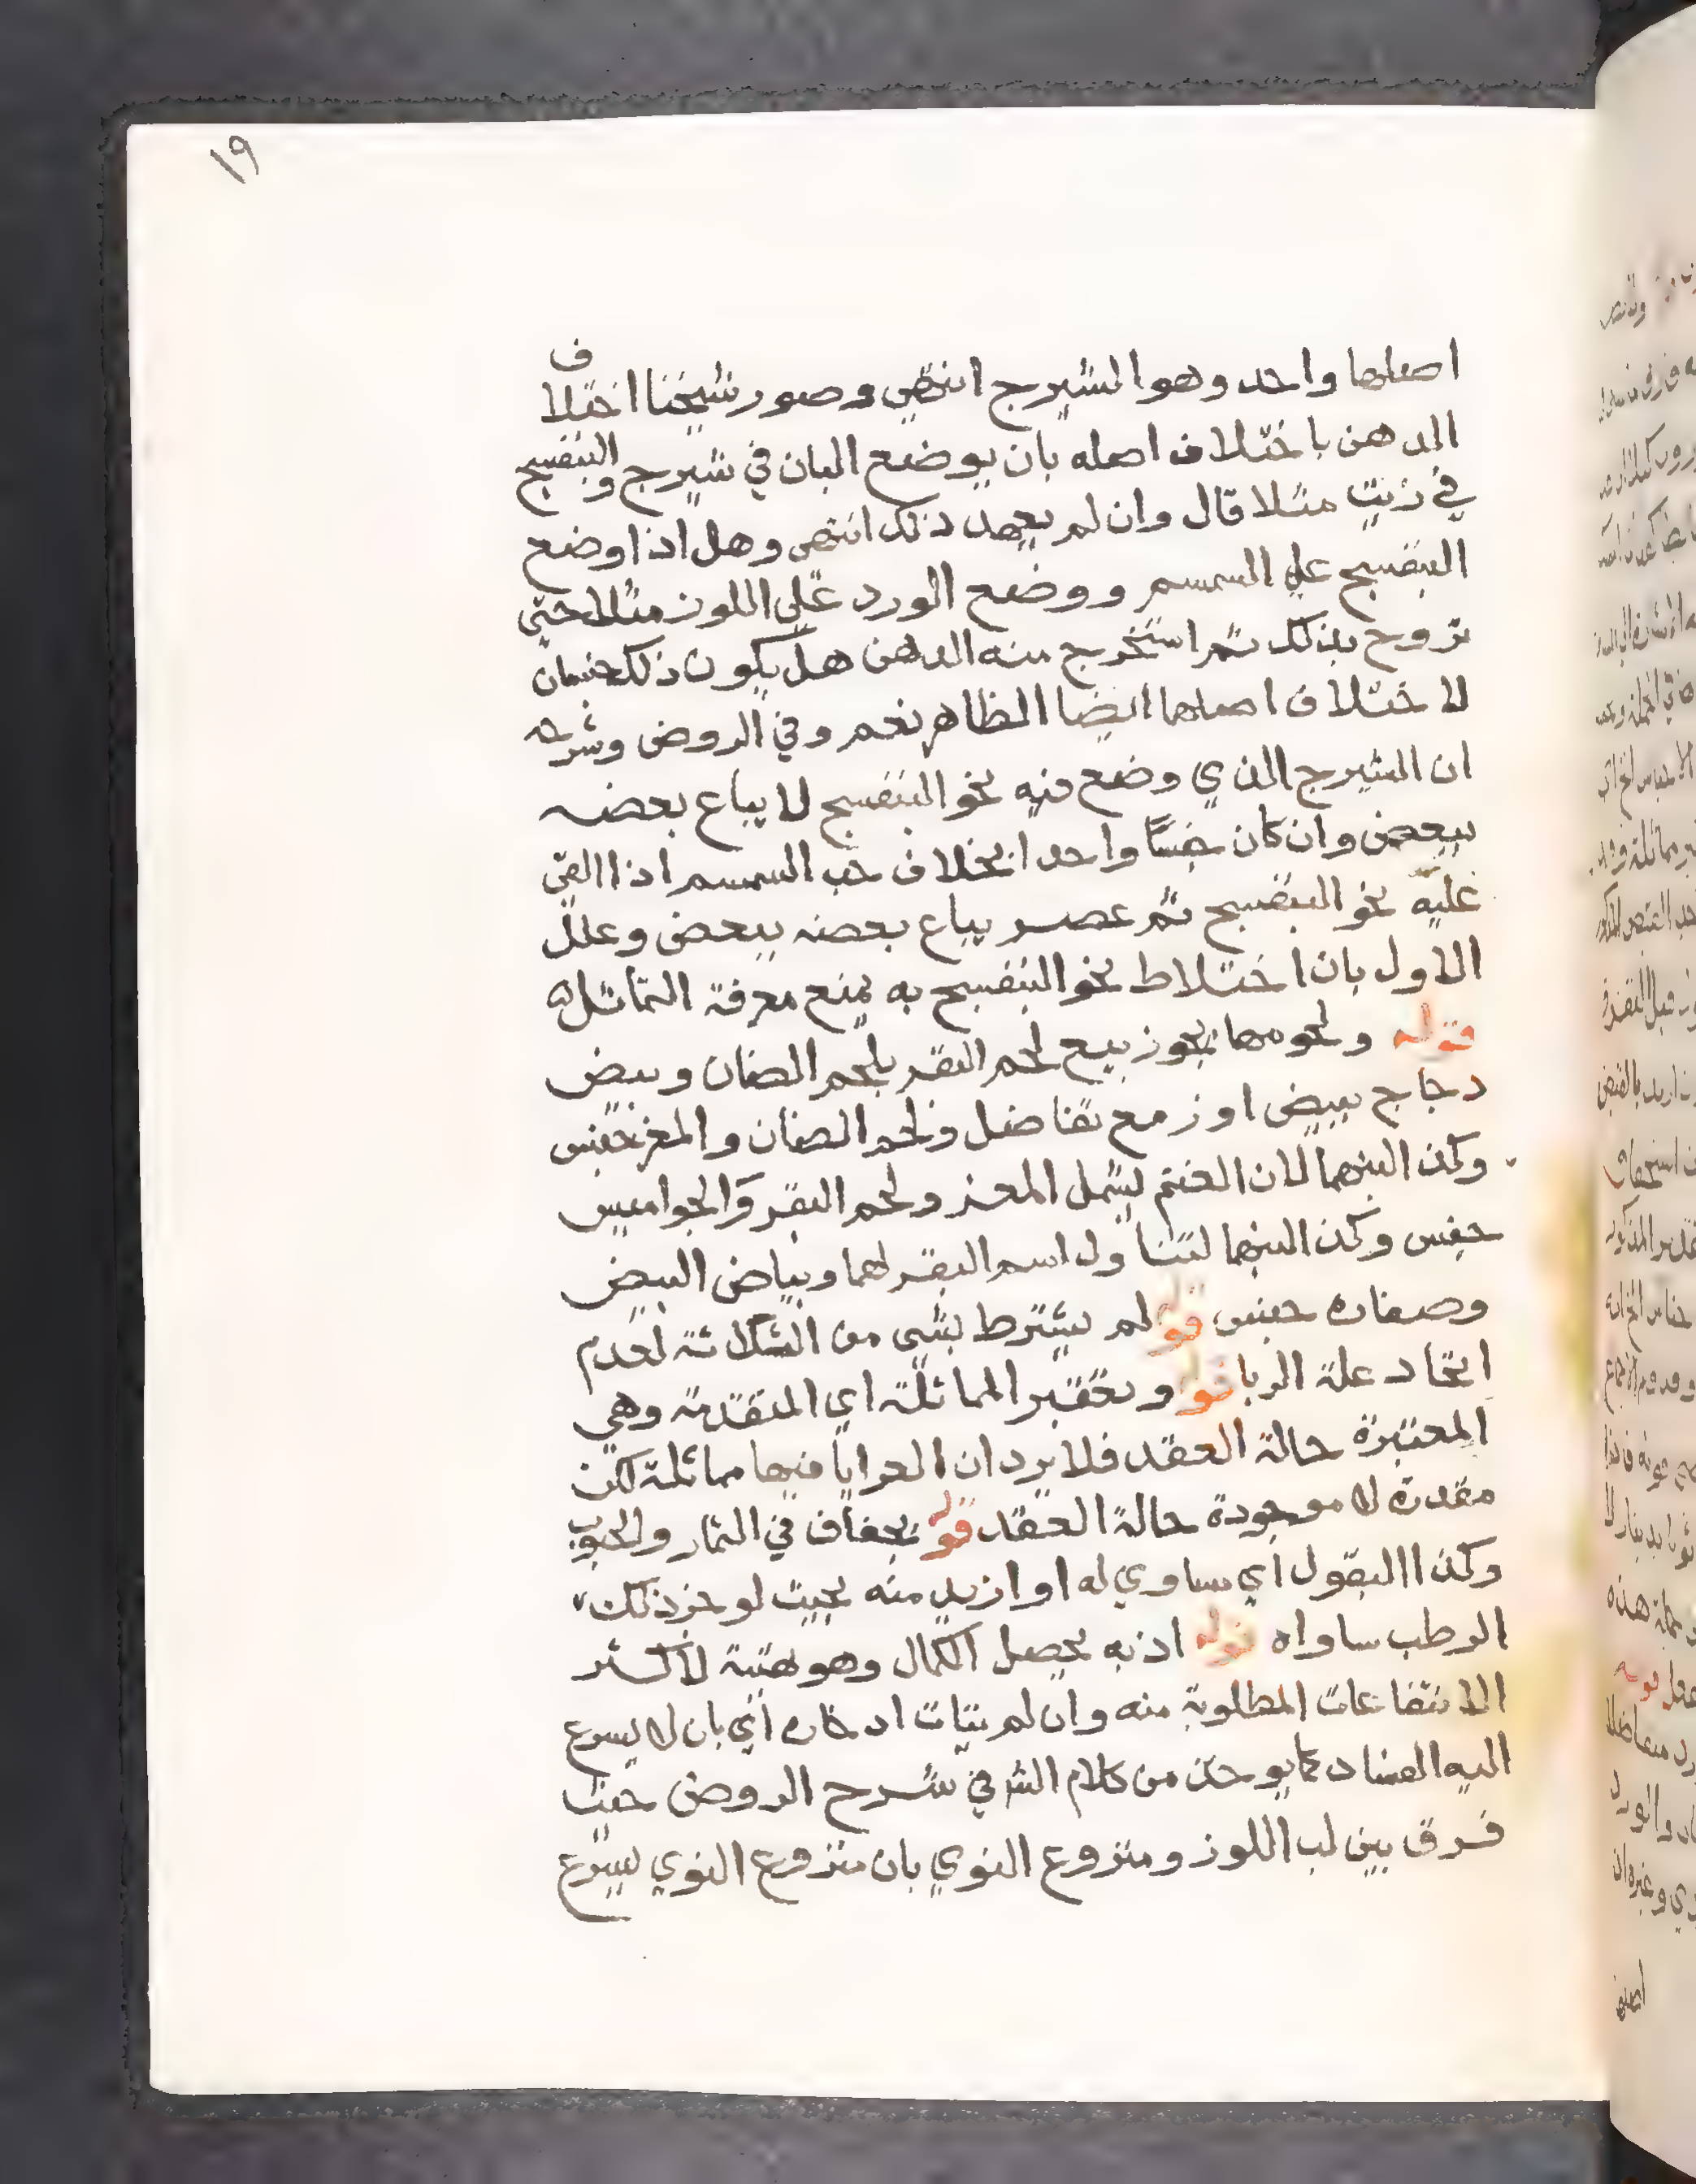 ١٩
اصلها واحد وهو الشيرج انتهي وصور شيخنا اختلاف
الدهن باختلاف اصله بان يوضع البان في شيرج والبنفسج
في زيت مثلا قال وان لم يعهد ذلك انتهى وهل اذا وضع
البنفسج علي السمسم ووضع الورد علي اللوز مثلا حتي
تروح بذلك ثم استخرج منه الدهن هل يكون ذلك جنسان
لاختلاف اصلها ايضا الظاهر نعم وفي الروض وشرحه
ان الشيرج الذي وضع فيه نحو البنفسج لا يباع بعضه
ببعض وان كان جنسًا واحدا بخلاف حب السمسم اذا القي
عليه نحو البنفسج ثم عصر يباع بعضه ببعض وعلل
الاول بان اختلاط نحو البنفسج به يمنع معرفة التماثل
قوله ولحومها يجوز بيع لحم البقر بلحم الضان وبيض
دجاج ببيض اوز مع تفاضل ولحم الضان والمعز جنس
وكذا لبنهما لان الغنم يشمل المعز ولحم البقر والجواميس
جنس وكذا لبنهما لتناول اسم البقر لهما وبياض البيض
وصفاره جنس قوله لم يشترط شي من الثلاثة لعدم
اتحاد علة الربا قوله وتعتبر المماثلة اي المتقدمة وهي
المعتبرة حالة العقد فلا يرد ان العرايا فيها مماثلة لكن
مقدرة لا موجودة حالة العقد قوله بجفاف في الثمار والحبوب
وكذا البقول اي مساوي له او ازيد منه بحيث لو جف ذلك
الرطب ساواه قوله اذ به يحصل الكمال وهو هيئة لاكثر
الانتفاعات المطلوبة منه وان لم يتات ادخاره اي بان لا يسرع
اليه الفساد كما يوخذ من كلام الش في شرح الروض حيث
فرق بين لب اللوز ومنزوع النوي بان منزوع النوي يسرع